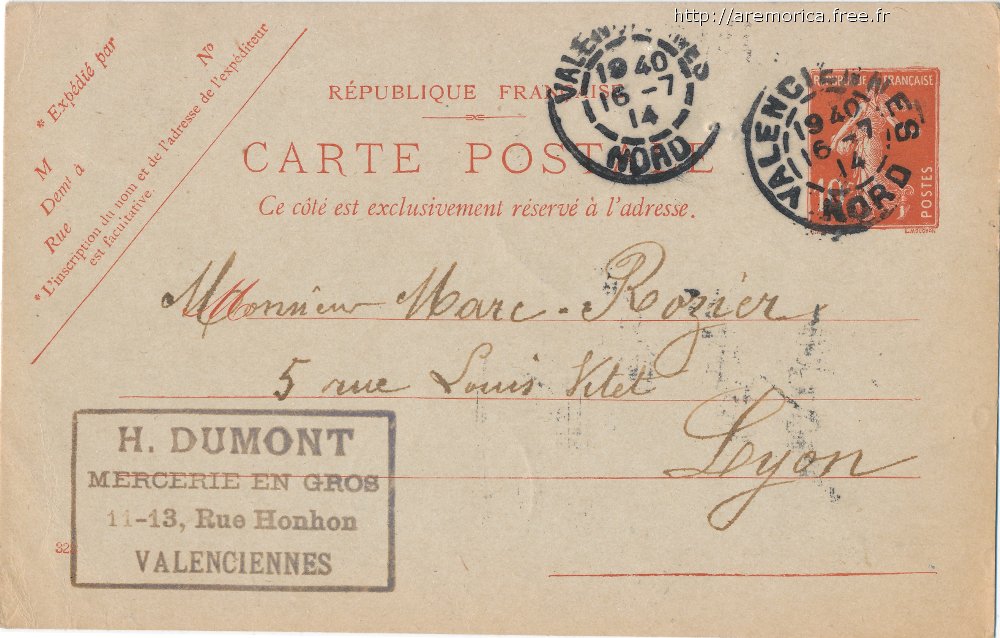 http://aremorica.free.fr
* Expédié par
M
Demt à
Rue
No
* L'inscription du nom et de l'adresse de l'expéditeur
est facultative.
RÉPUBLIQUE FRANÇAISE
CARTE POSTALE
Ce côté est exclusivement réservé à l'adresse.
VALENCIENNES
19 40
16 -7
14
NORD
VALENCIENNES
19 40
16 -7
14
NORD
RÉPUBLIQUE FRANÇAISE
POSTES
Monsieur Marc - Rozier
5 rue Louis Vitet
Lyon
H. DUMONT
MERCERIE EN GROS
11-13, Rue Honhon
VALENCIENNES